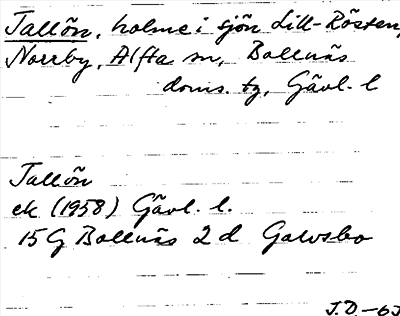 Tallön, holme i sjön Lill-Rösten,
Norrby, Alfta sn, Bollnäs
doms. tg, Gävl. l
Tallön
ek (1958) Gävl. l.
15G Bollnäs 2d Galvsbo
J.D.-63